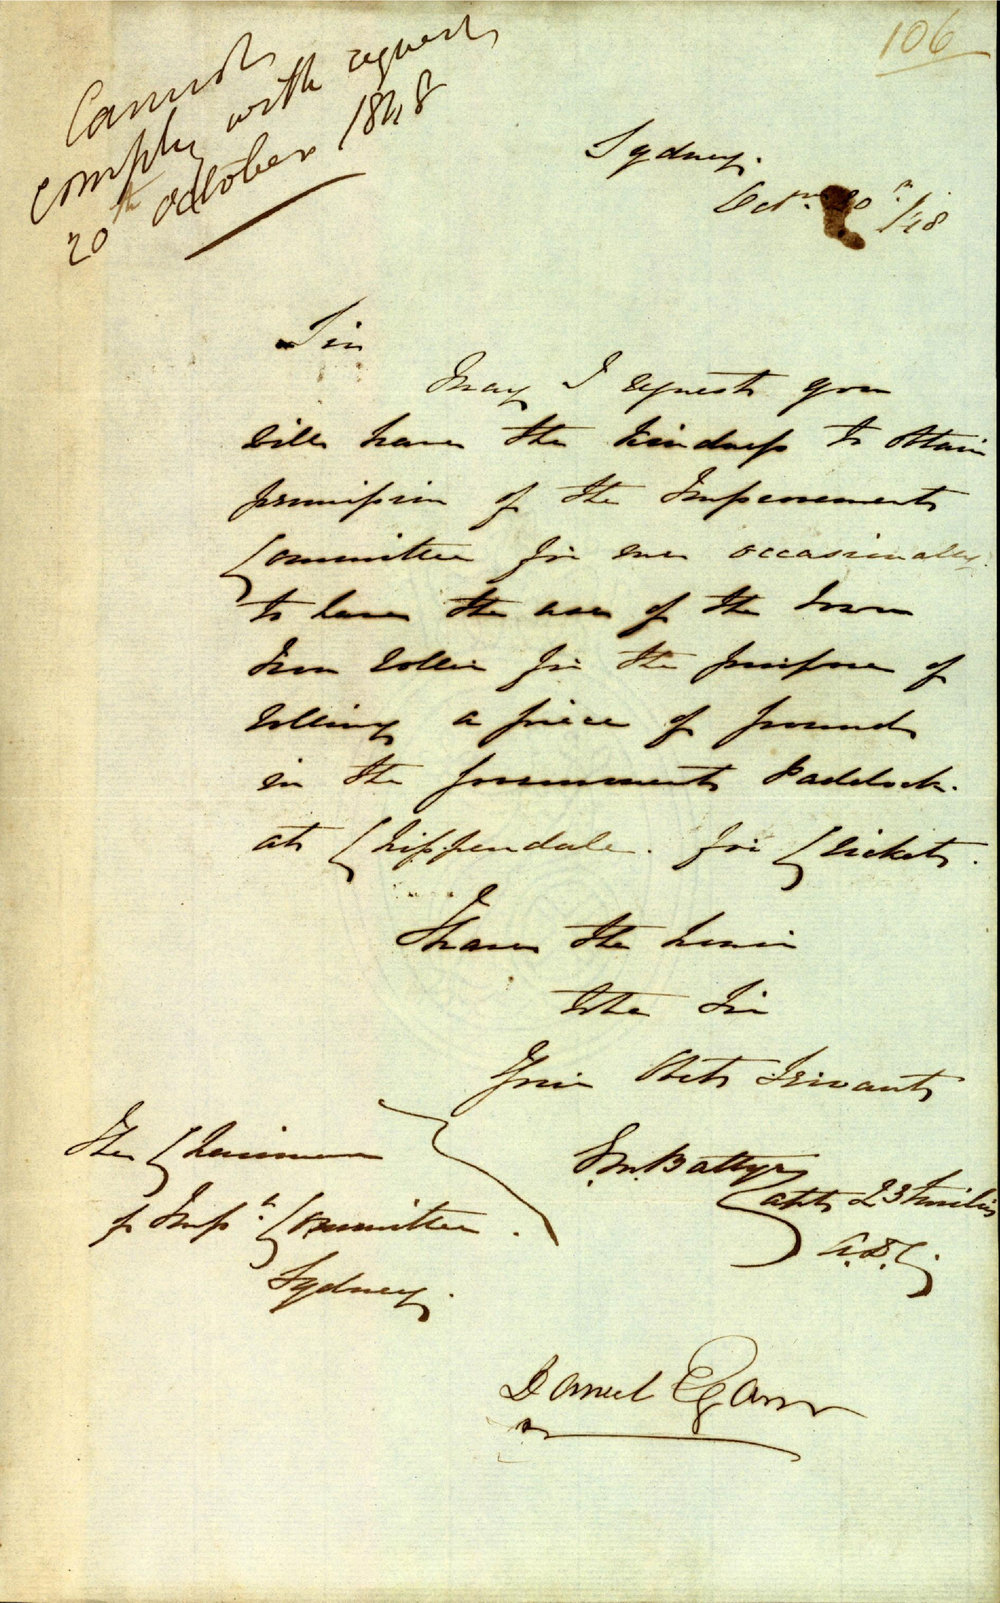 106
Cannot
comply with request
20th October 1848
Sydney.
Octr. 20th /48
Sir
May I request you
will have the kindness to obtain
permission of the Improvements
Committee for me occasionally
to have the use of the
Iron Roller for the purpose of
rolling a piece of ground
in the Government Paddock.
at Chippendale. for Cricket.
I have the honor
to be Sir
Your Obt Servant
Wm. Battye
Captn 23 Fusiliers
A.D.C.
The Chairman
of Impt. Committee.
Sydney.
Daniel Egan